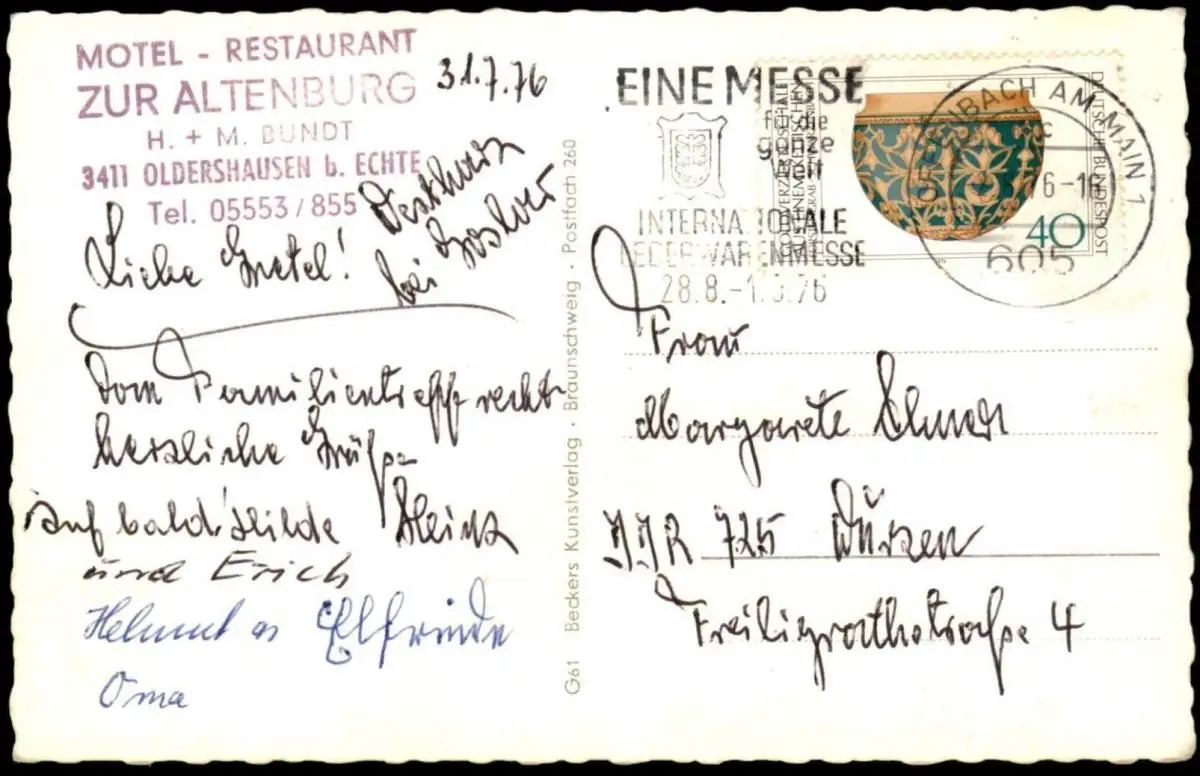 MOTEL - RESTAURANT
ZUR ALTENBURG
H. + M. BUNDT
3411 OLDERSHAUSEN b. ECHTE
Tel. 05553/855
31.7.76
Westharz
bei Goslar
Liebe Gretel!
Vom Familientreff recht
herzliche Grüße
auf bald Hilde Heinz
und Erich
Helmut Elfriede
Oma
G61 Beckers Kunstverlag · Braunschweig · Postfach 260
EINE MESSE
für die
ganze
Welt
INTERNATIONALE
LEDERWARENMESSE
28.8.-1.9.76
OFFENBACH AM MAIN 1
605
DEUTSCHE BUNDESPOST
40
Frau
Margarete
DDR 725 Wurzen
Freiligrathstraße 4